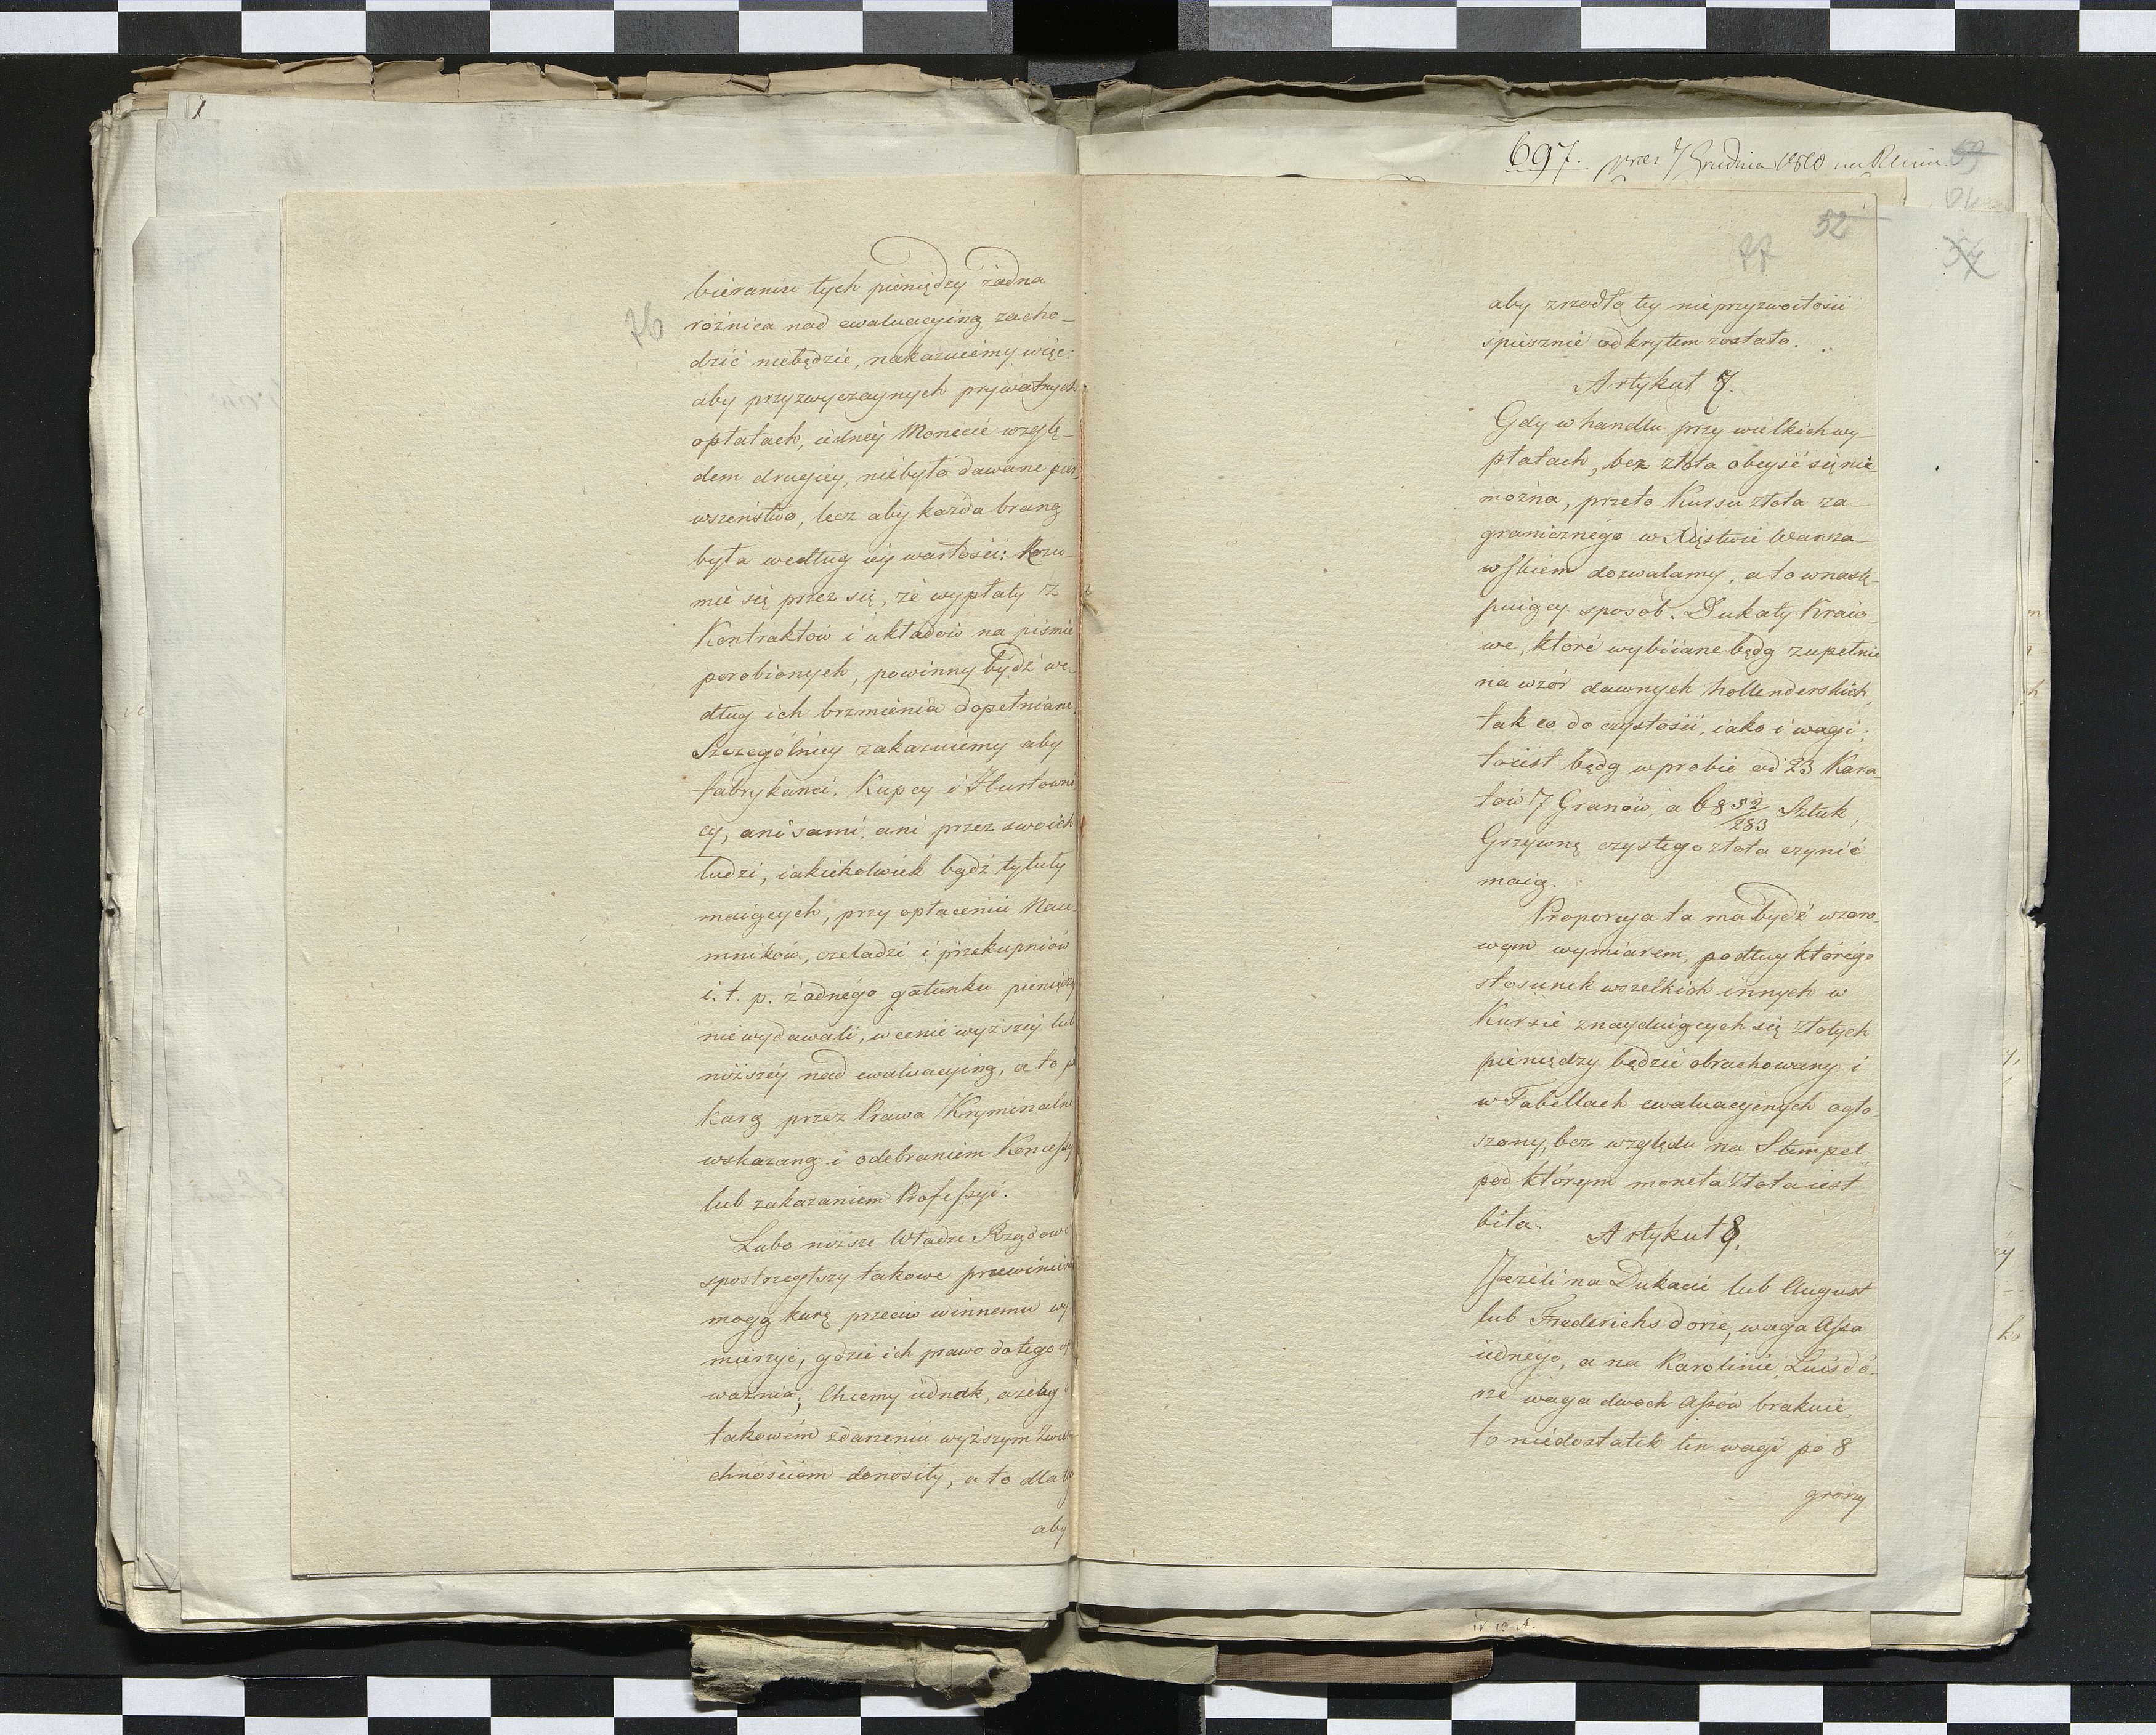 76
bieraniu tych pieniędzy żadna
różnica nad ewaluacyiną zacho-
dzić niebędzie, nakazuiemy więc:
aby przyzwyczaynych prywatnych
opłatach, iedney Monecie wzglę-
dem drugiey, niebyło dawane pier
wszeństwo, lecz aby każda braną
była według iey wartości: Rozu-
mie się przez się, że wypłaty z
Kontraktów i układów na piśmie
porobionych, powinny bydź we-
dług ich brzmienia dopełniane.
Szczególniey zakazuiemy aby
fabrykanci, Kupcy i Hurtowni
cy, ani sami, ani przez swoich
ludzi, iakiekolwiek bądź tytuły
maiących, przy opłaceniu Nai-
mników, czeladzi i przekupniów
i. t. p. żadnego gatunku pieniędzy
niewydawali, w cenie wyższey lub
niższey nad ewaluacyiną, a to p
karą przez Prawa Kryminalne
wskazaną i odebraniem Koncessyi
lub zakazaniem Professyi.
Lubo niższe Władze Rządowe
spostrzegłszy takowe przewinien
mogą karę przeciw winnemu wy
mierzyć, gdzie ich prawo do tego u
ważnia; Chcemy iednak, ażeby o
takowém zdarzeniu wyższym Zwierz
chnościom donosiły, a to dla te
aby
697. przez 7 Grudnia 1810 na 53
52
77
54
aby zrzodło tey nieprzyzwoitości
spiesznie odkrytem zostało.
Artykuł 7.
Gdy w handlu przy wielkich wy-
płatach, bez złota obeyść się nie
można, przeto Kursu złota za-
granicznégo w Xięstwie Warsza-
wskiem dozwalamy, a to w nastę-
puiący sposob. Dukaty Kraio-
we, które wybiiane będą zupełnie
na wzór dawnych hollenderskich,
tak co do czystości, iako i wagi;
toiest będą w probie od 23 Kara
tów 7 Granów, a 68 52/283 Sztuk,
Grzywnę czystego złota czynić
maią.
Proporcya ta ma bydź wzoro-
wym wymiarem, podług którégo
stosunek wszelkich innych w
Kursie znayduiących się złotych
pieniędzy będzie obrachowany i
w Tabellach ewaluacyinych ogło-
szony, bez względu na Stempel,
pod którym moneta złota iest
bita.
Artykuł 8.
Jeżeli na Dukacie lub August
lub Frederichsdorze, waga Assa
iednégo, a na Karolinie, Luisdo-
rze waga dwoch Assów brakuie,
to niedostatek ten wagi po 8
groszy